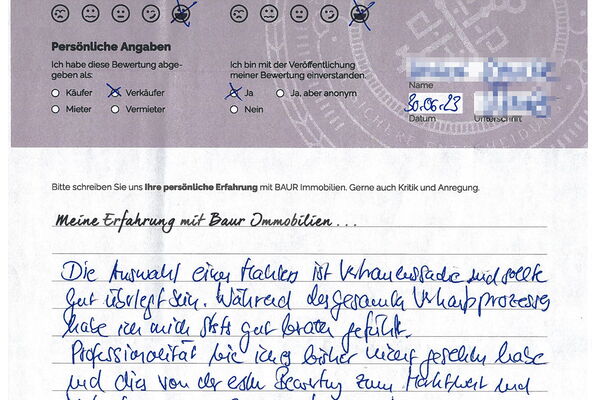 Persönliche Angaben
Ich habe diese Bewertung abge-
geben als:
Käufer Verkäufer
Mieter Vermieter
Ich bin mit der Veröffentlichung
meiner Bewertung einverstanden.
Ja Ja, aber anonym
Nein
Name
30.06.23
Datum Unterschrift
Bitte schreiben Sie uns Ihre persönliche Erfahrung mit BAUR Immobilien. Gerne auch Kritik und Anregung.
Meine Erfahrung mit Baur Immobilien...
Die Auswahl eines Maklers ist Vertrauenssache und sollte
gut überlegt sein. Während des gesamten Verkaufprozesses
habe ich mich stets gut beraten gefühlt.
Professionalität wie ich es bisher nicht gesehen habe
und dies von der ersten Bewertung zum Marktwert und